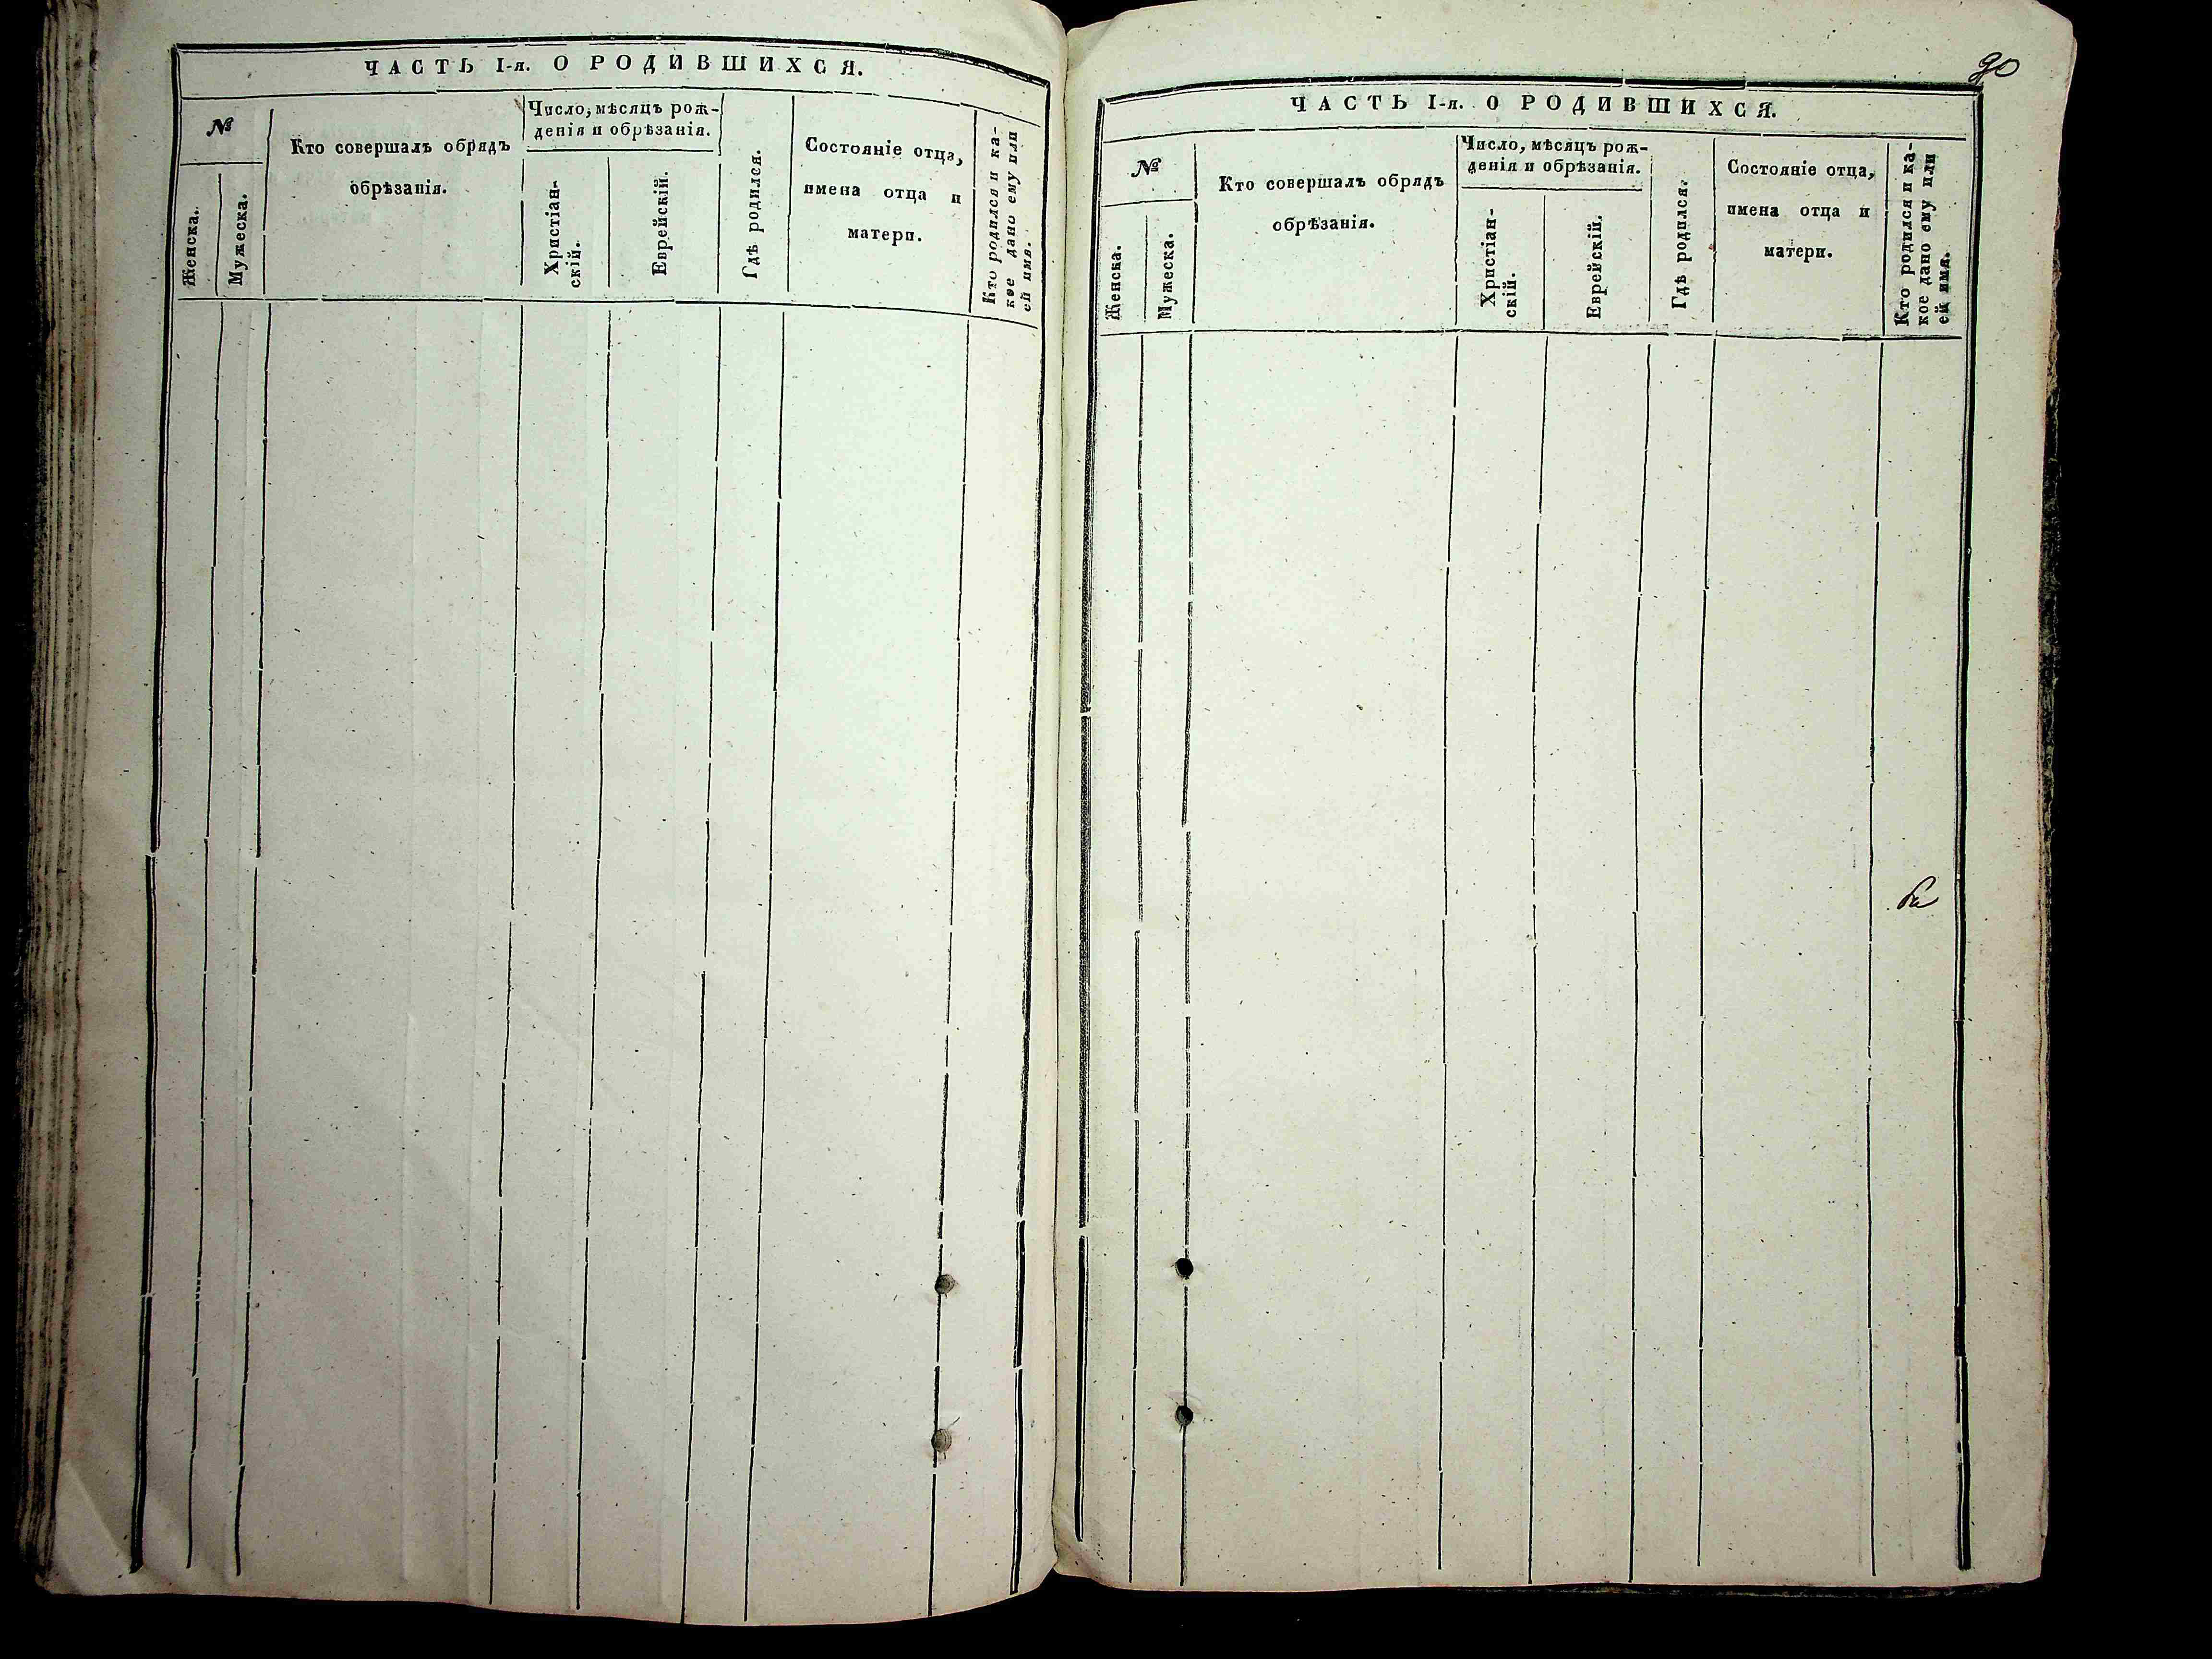 ЧАСТЬ I-я. О РОДИВШИХСЯ.
№
Женска.
Мужеска.
Кто совершалъ обрядъ
обрѣзанія.
Число, мѣсяцъ рож-
денія и обрѣзанія.
Христіан-
скій.
Еврейскій.
Гдѣ родился.
Состояніе отца,
имена отца и
матери.
Кто родился и ка-
кое дано ему или
ей имя.
90
ЧАСТЬ I-я. О РОДИВШИХСЯ.
№
Женска.
Мужеска.
Кто совершалъ обрядъ
обрѣзанія.
Число, мѣсяцъ рож-
денія и обрѣзанія.
Христіан-
скій.
Еврейскій.
Гдѣ родился.
Состояніе отца,
имена отца и
матери.
Кто родился и ка-
кое дано ему или
ей имя.